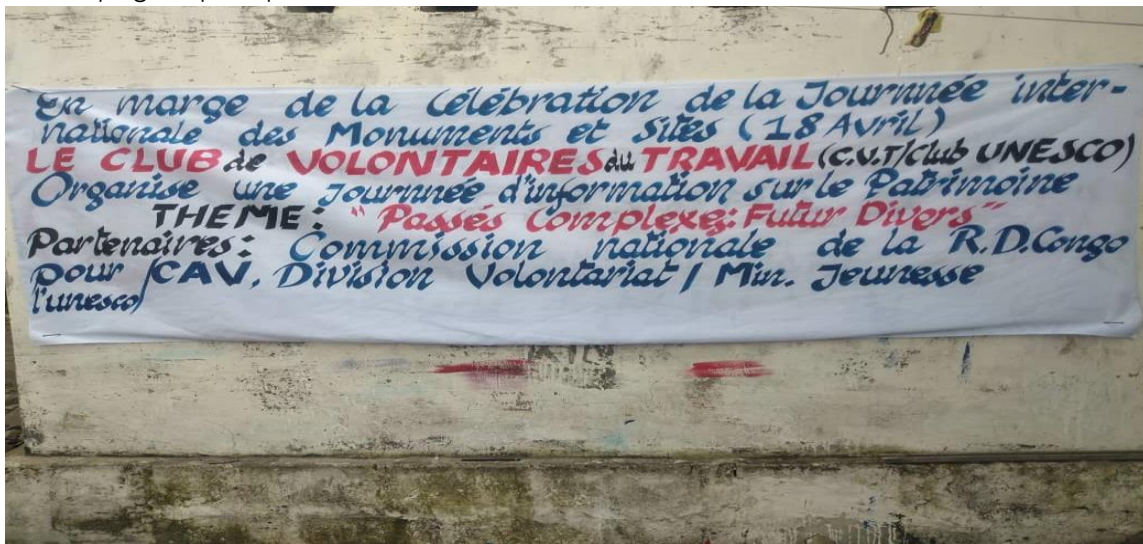 En marge de la Célébration de la Journnée inter-
nationale des Monuments et Sites (18 Avril)
LE CLUB de VOLONTAIRES du TRAVAIL (C.V.T/Club UNESCO)
Organise une Journnée d'information sur le Patrimoine
THEME: "Passés Complexe; Futur Divers"
Partenaires: Commission nationale de la R.D.Congo
pour /CAV, Division Volontariat / Min. Jeunesse
l'unesco/